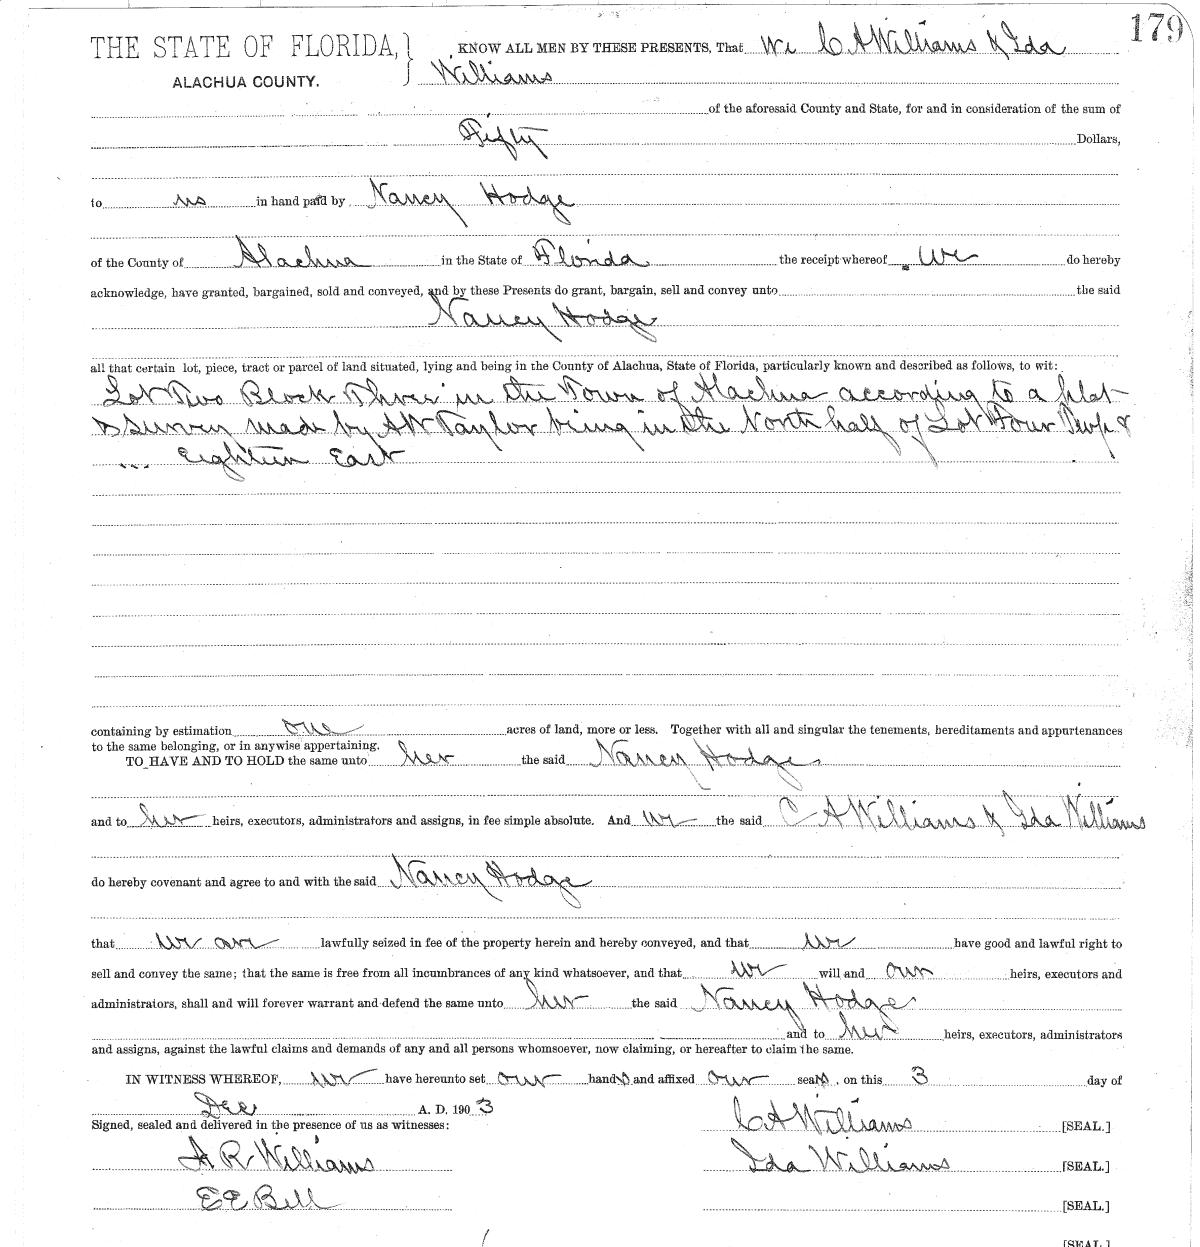 179
THE STATE OF FLORIDA,
ALACHUA COUNTY.
KNOW ALL MEN BY THESE PRESENTS, That We C A Williams & Ida
Williams
of the aforesaid County and State, for and in consideration of the sum of
Fifty Dollars,
to us in hand paid by Nancy Hodge
of the County of Alachua in the State of Florida the receipt whereof We do hereby
acknowledge, have granted, bargained, sold and conveyed, and by these Presents do grant, bargain, sell and convey unto the said
Nancy Hodge
all that certain lot, piece, tract or parcel of land situated, lying and being in the County of Alachua, State of Florida, particularly known and described as follows, to wit:
Lot Two Block Three in the Town of Alachua according to a plot
& Survey made by Taylor being in the North half of Lot Four Twp 8
Eighteen East
containing by estimation one acres of land, more or less. Together with all and singular the tenements, hereditaments and appurtenances
to the same belonging, or in anywise appertaining.
TO HAVE AND TO HOLD the same unto her the said Nancy Hodge
and to her heirs, executors, administrators and assigns, in fee simple absolute. And we the said C A Williams & Ida Williams
do hereby covenant and agree to and with the said Nancy Hodge
that we are lawfully seized in fee of the property herein and hereby conveyed, and that we have good and lawful right to
sell and convey the same; that the same is free from all incumbrances of any kind whatsoever, and that we will and our heirs, executors and
administrators, shall and will forever warrant and defend the same unto her the said Nancy Hodge
and to her heirs, executors, administrators
and assigns, against the lawful claims and demands of any and all persons whomsoever, now claiming, or hereafter to claim the same.
IN WITNESS WHEREOF, we have hereunto set our hands and affixed our seals, on this 3 day of
Dec A. D. 1903
Signed, sealed and delivered in the presence of us as witnesses:
C A Williams [SEAL.]
A R Williams
Ida Williams [SEAL.]
E E Bell
[SEAL.]
[SEAL.]